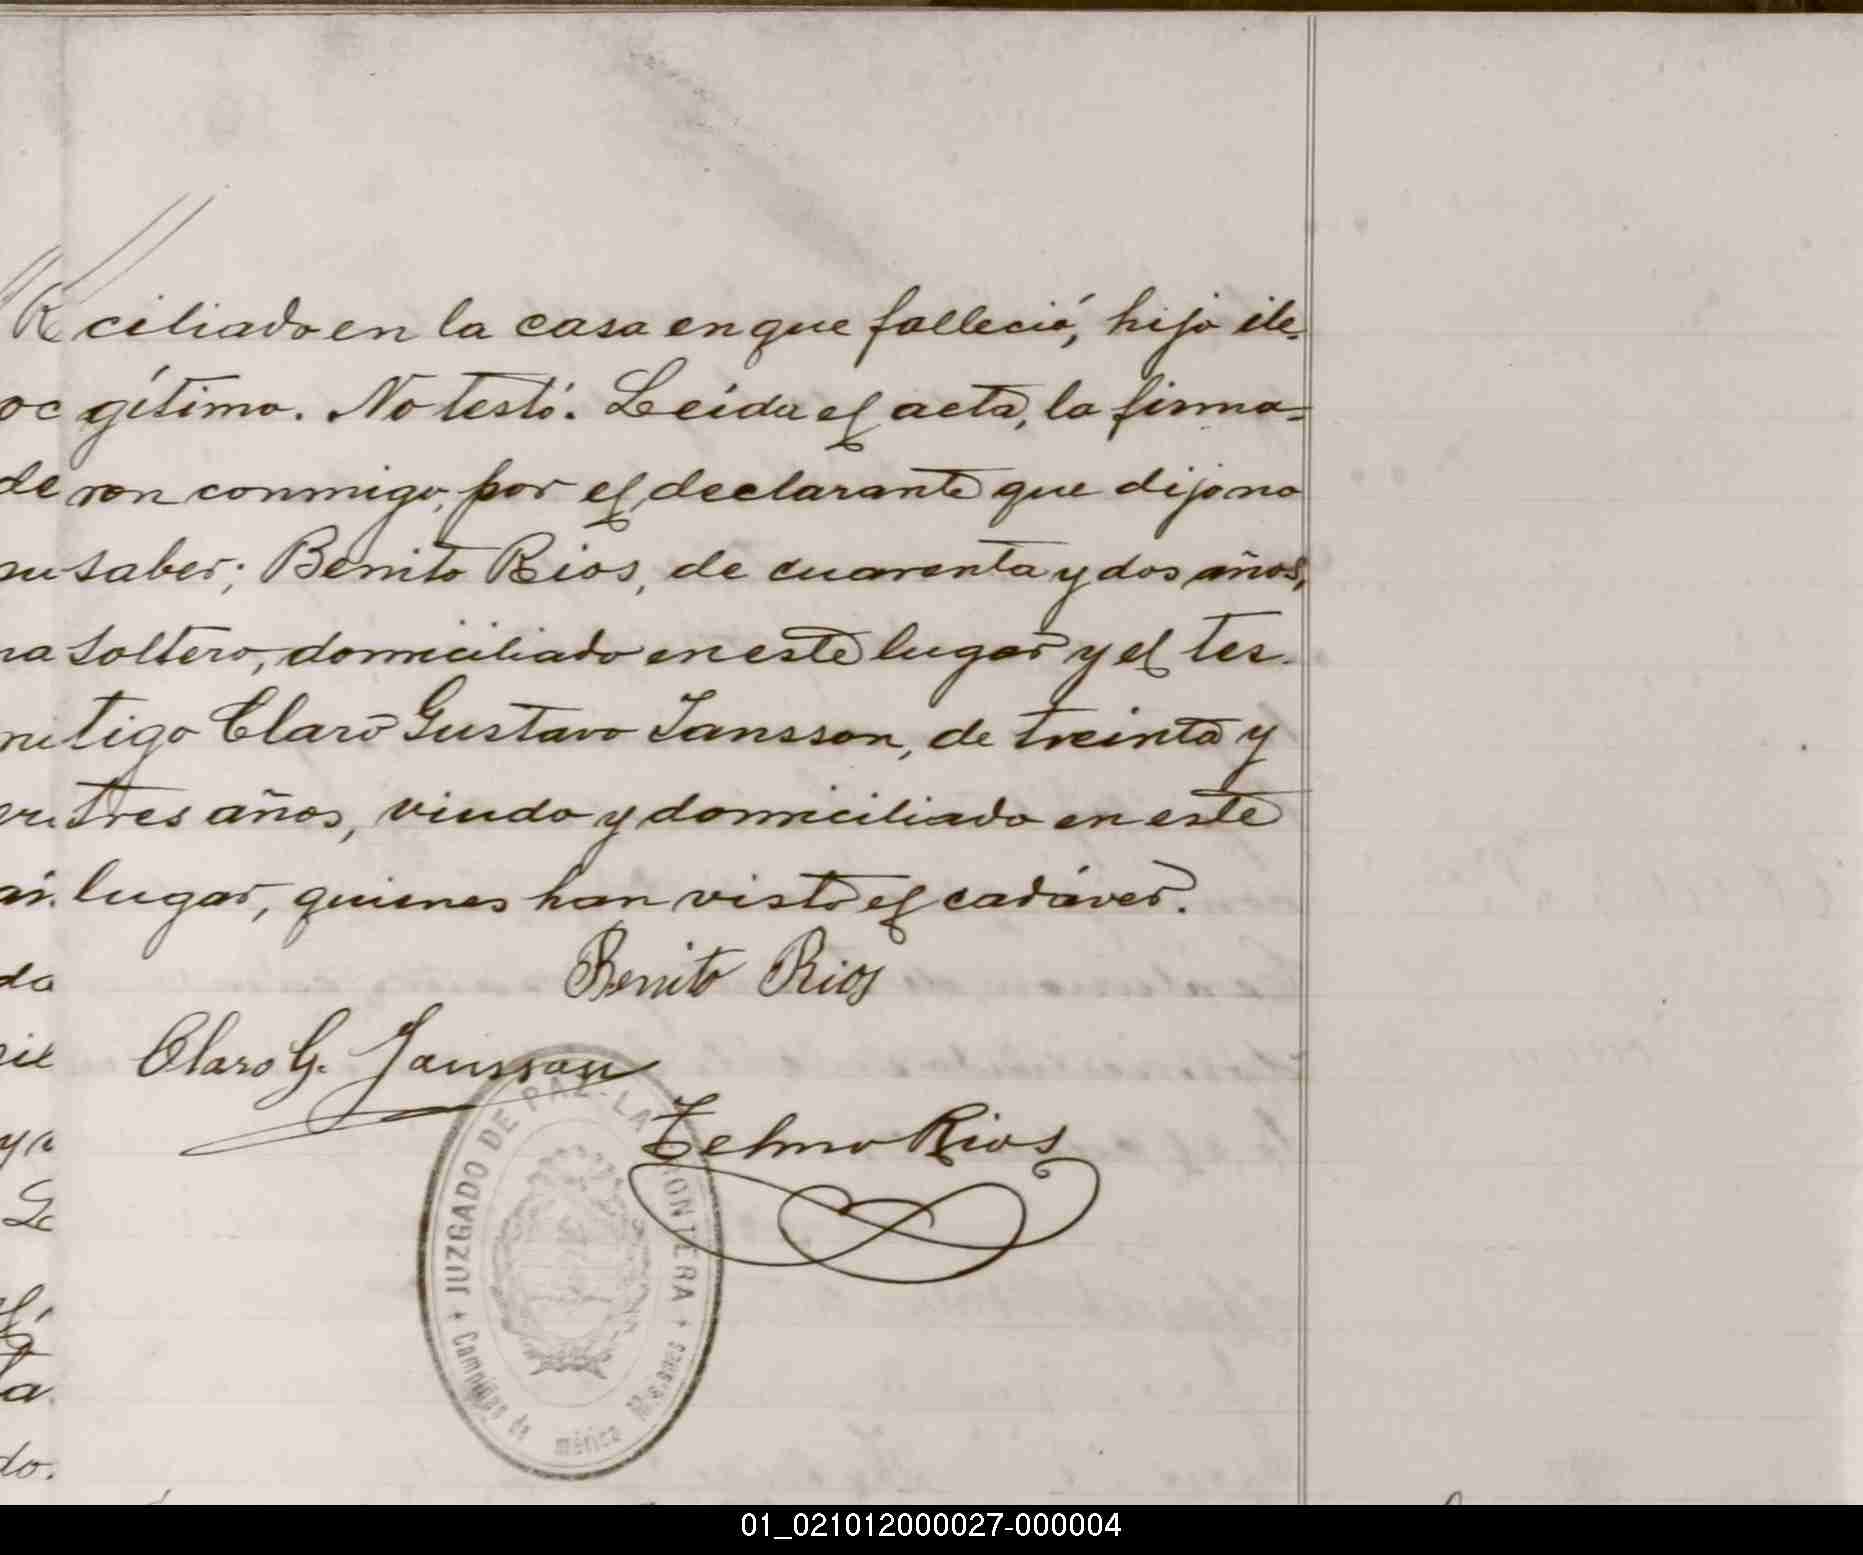 ciliado en la casa en que falleció, hijo ile-
gítimo. No testó. Leída el acta, la firma-
ron conmigo, por el declarante que dijo no
saber; Benito Rios, de cuarenta y dos años,
soltero, domiciliado en este lugar y el tes-
tigo Claro Gustavo Jansson, de treinta y
tres años, viudo y domiciliado en este
lugar, quienes han visto el cadáver.
Benito Rios
Claro G. Jansson
Telmo Rios
JUZGADO DE PAZ - LA FRONTERA
Campiñas de América Misiones
da
y a
Le
ta.
do.
01_021012000027-000004